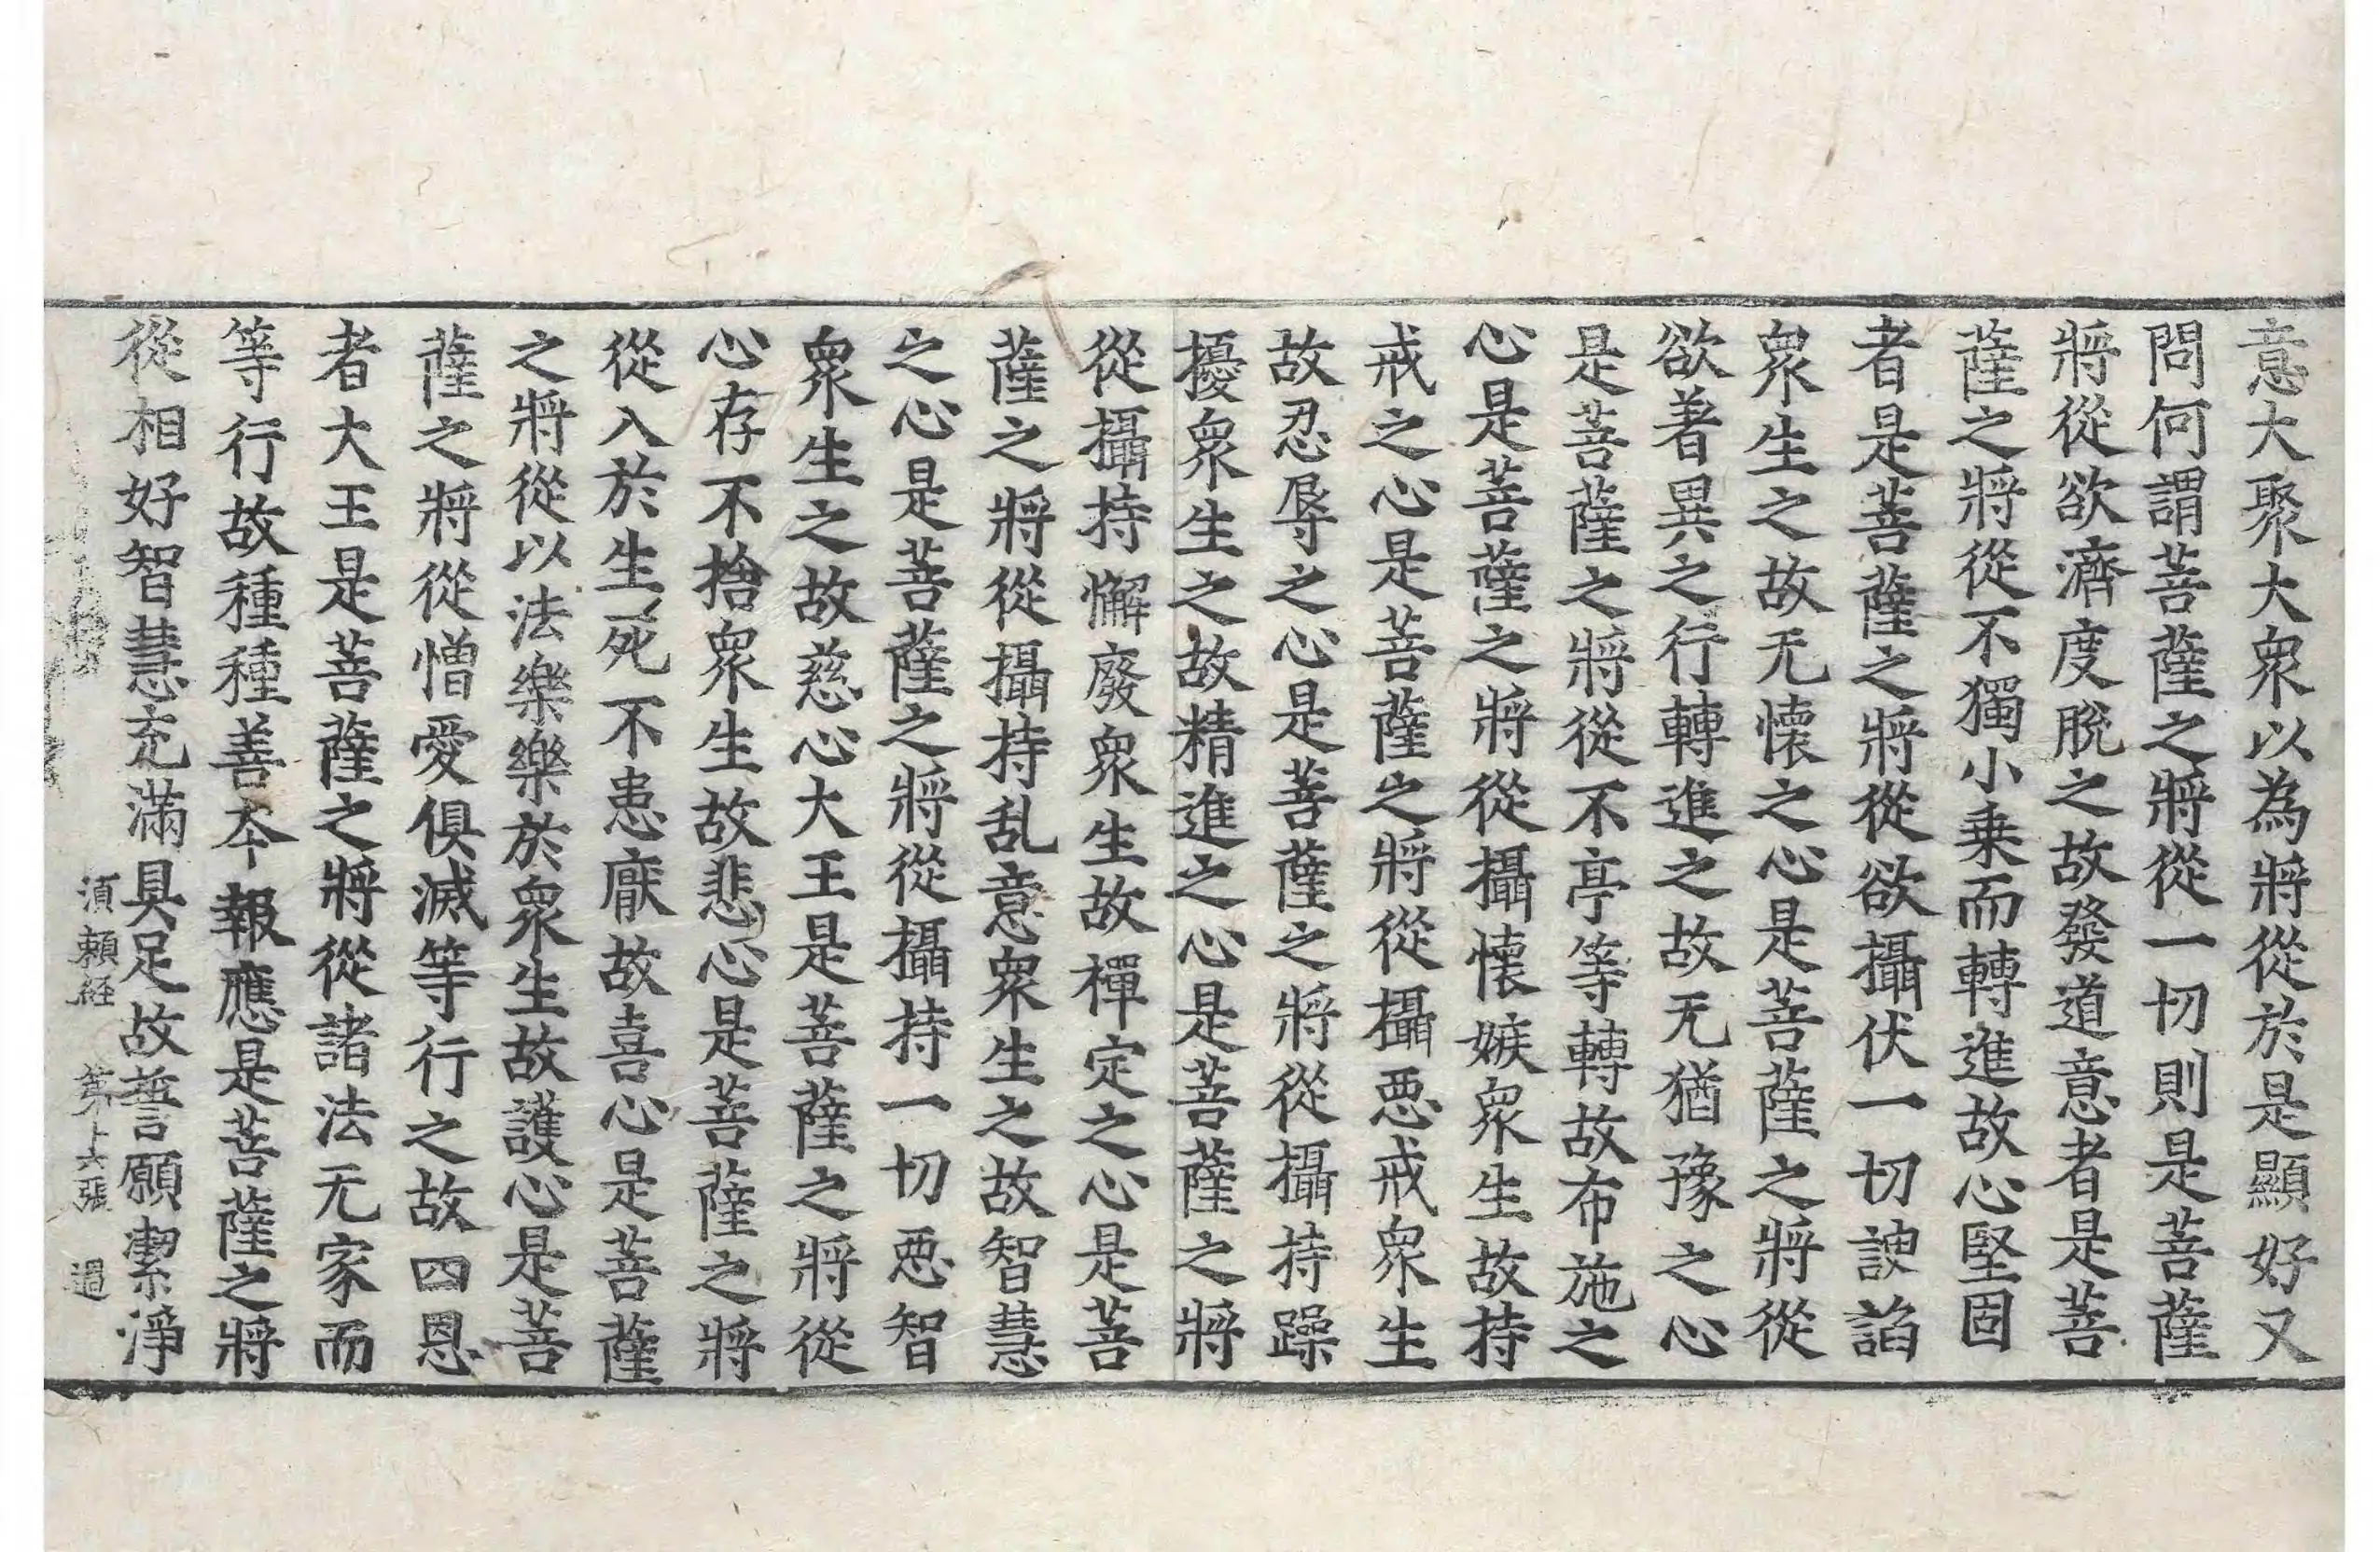 意大聚大衆以為將從於是顯好又
問何謂菩薩之將從一切則是菩薩
將從欲濟度脫之故發道意者是菩
薩之將從不獨小乗而轉進故心堅固
者是菩薩之將從欲攝伏一切諛諂
衆生之故无懷之心是菩薩之將從
欲著異之行轉進之故无猶豫之心
是菩薩之將從不亭等轉故布施之
心是菩薩之將從攝懷嫉衆生故持
戒之心是菩薩之將從攝惡戒衆生
故忍辱之心是菩薩之將從攝持躁
擾衆生之故精進之心是菩薩之將
從攝持懈廢衆生故禪定之心是菩
薩之將從攝持乱意衆生之故智慧
之心是菩薩之將從攝持一切惡智
衆生之故慈心大王是菩薩之將從
心存不捨衆生故悲心是菩薩之將
從入於生死不患厭故喜心是菩薩
之將從以法樂樂於衆生故護心是菩
薩之將從憎愛俱滅等行之故四恩
者大王是菩薩之將從諸法无家而
等行故種種善本報應是菩薩之將
從相好智慧充滿具足故誓願潔淨
湏頼経 第 張